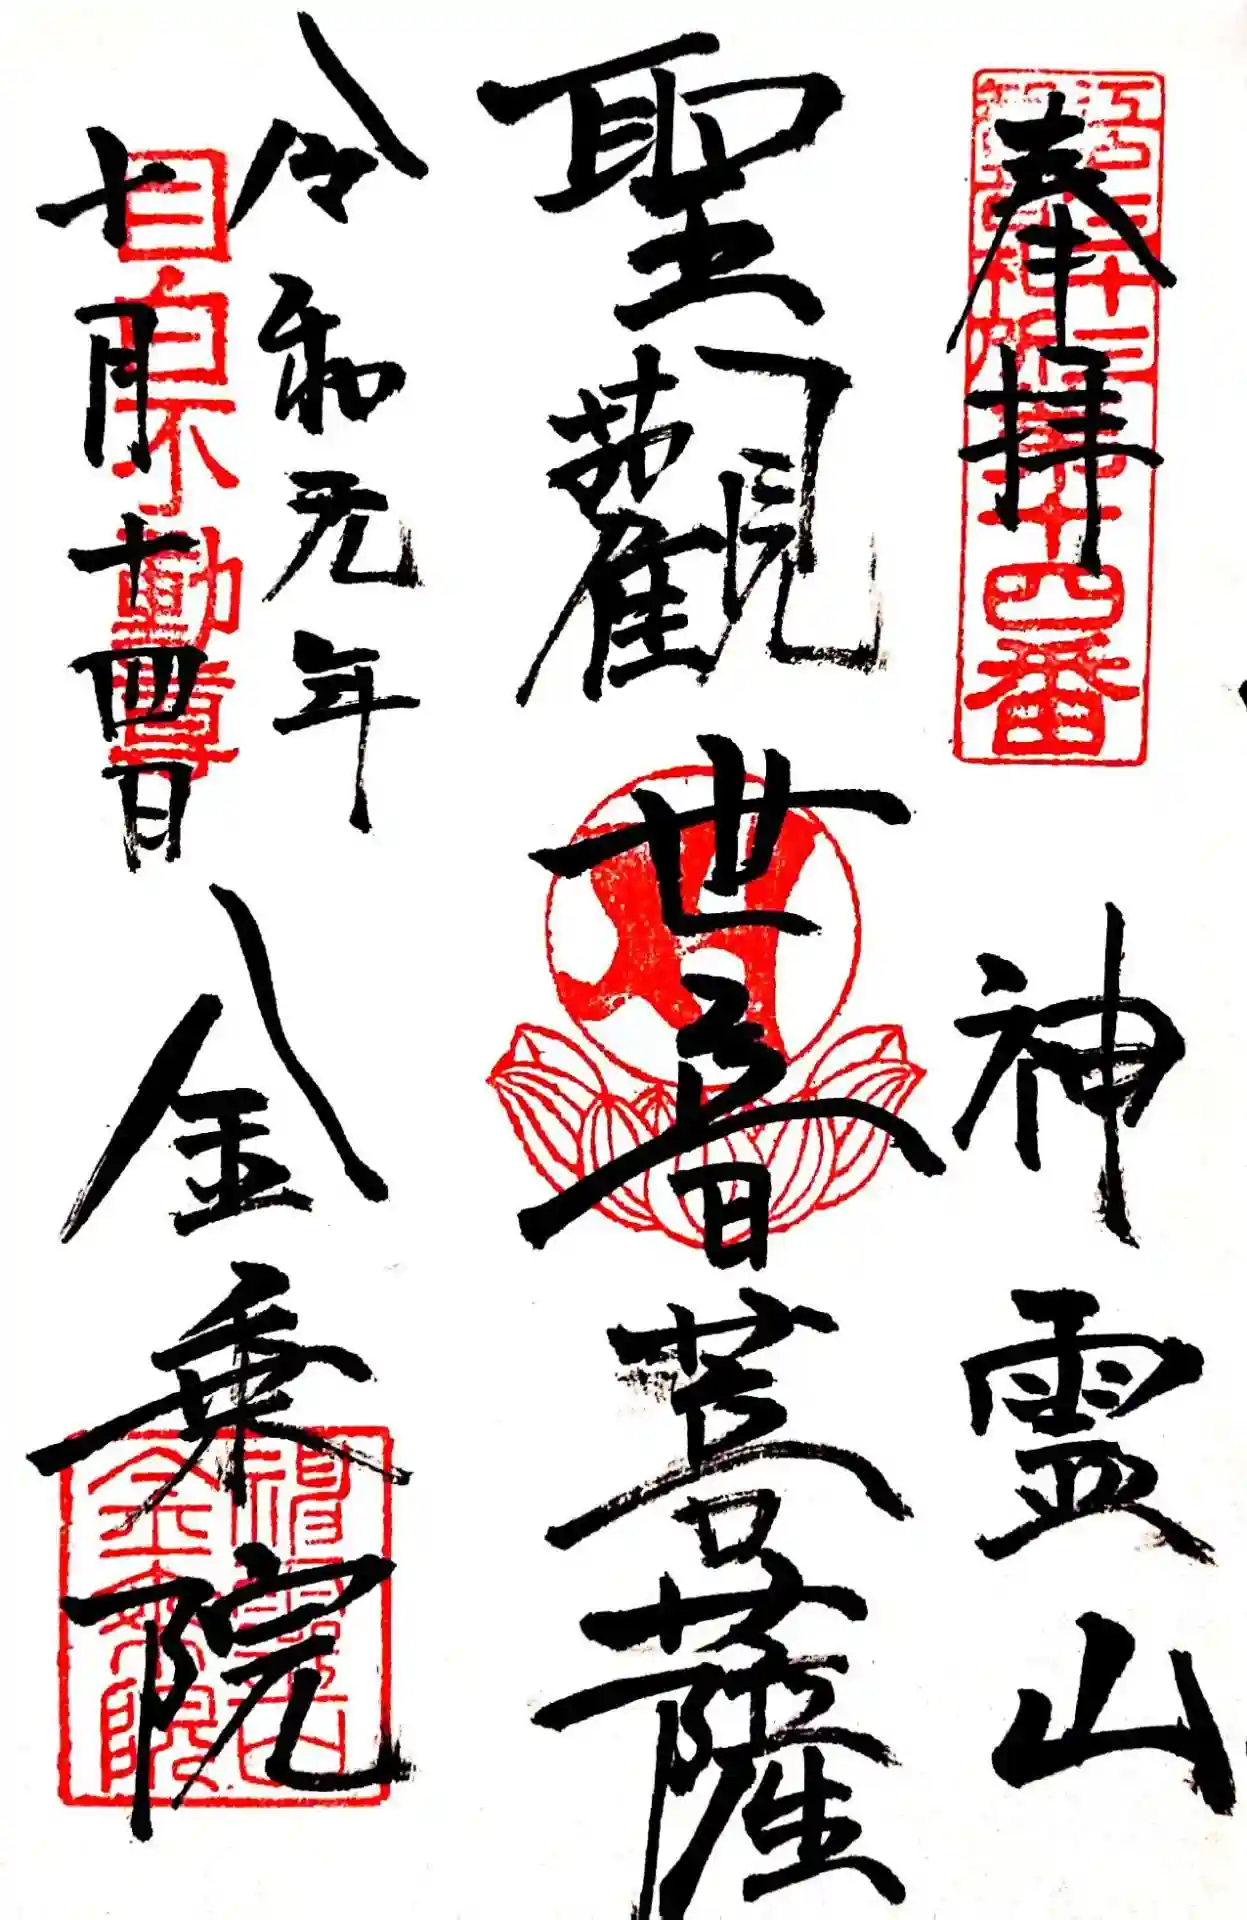 奉拝
江戸三十三
観音札所第十四番
神霊山
聖觀世音菩薩
令和元年
七月十四日
目白不動尊
金乗院
神霊山
金乗院